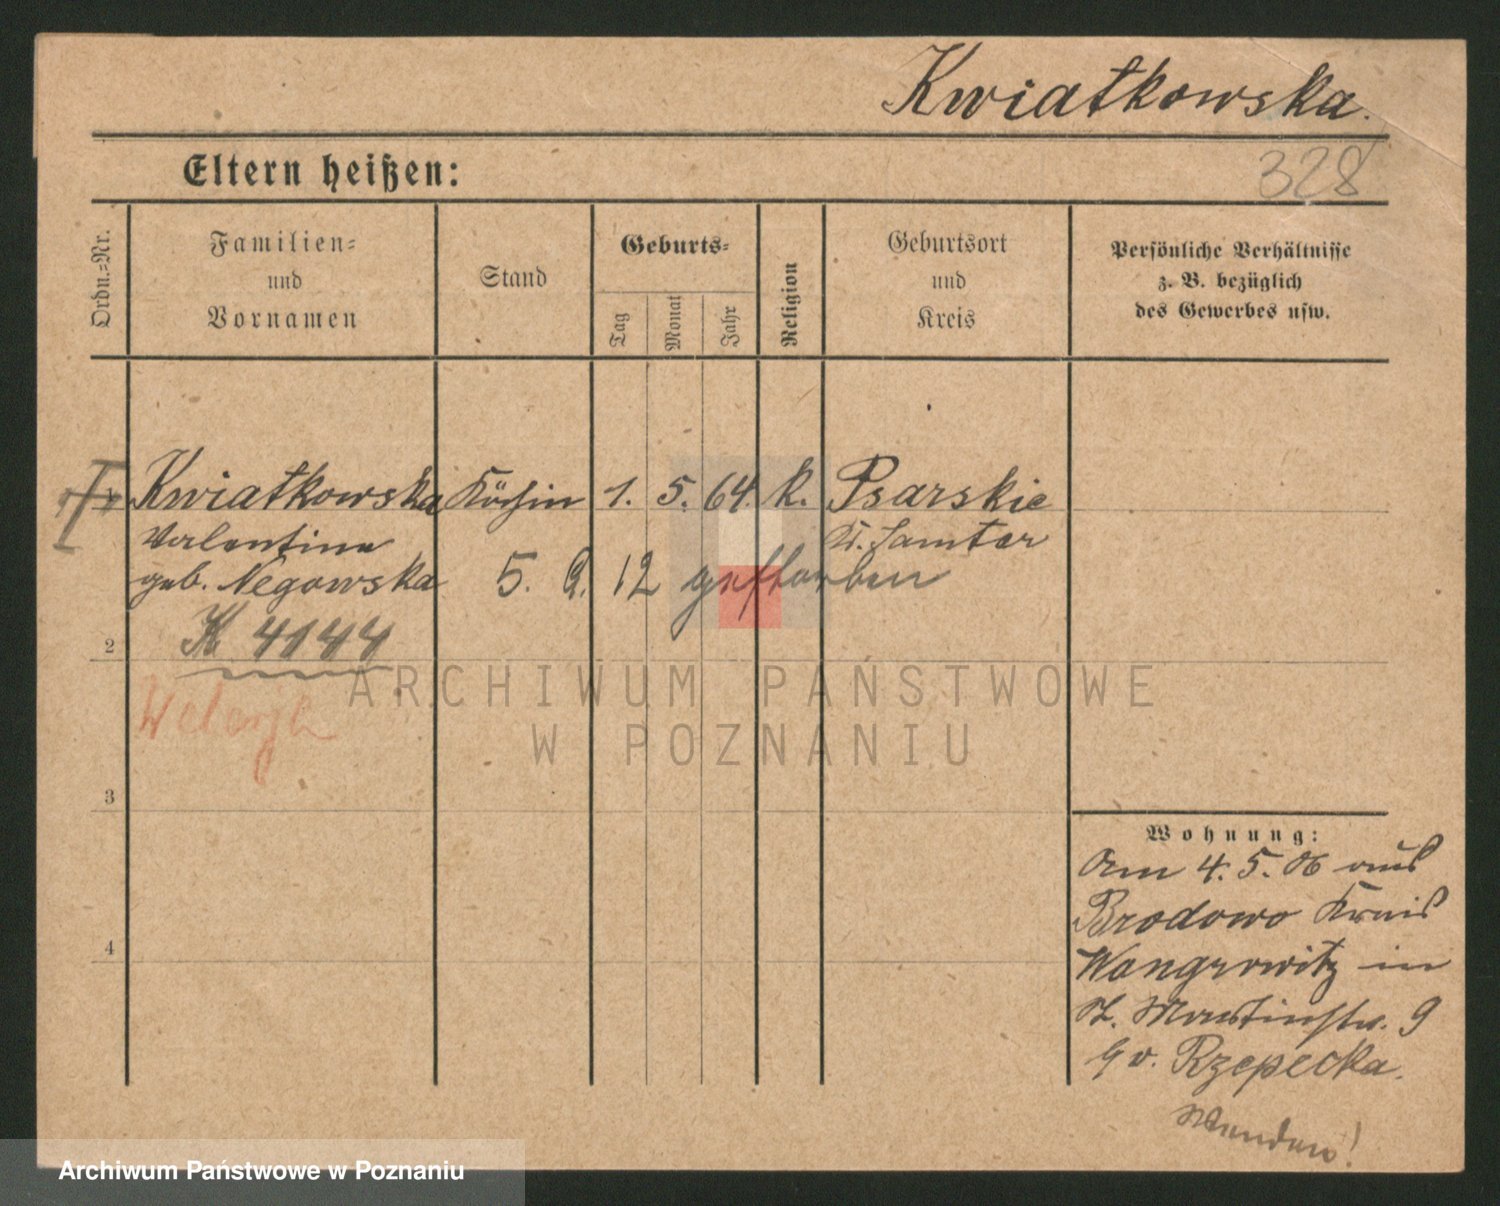 Kwiatkowska.
328
Eltern heißen:
Ordn.=Nr.
Familien=
und
Vornamen
Stand
Geburts=
Tag
Monat
Jahr
Religion
Geburtsort
und
Kreis
Persönliche Verhältnisse
z. B. bezüglich
des Gewerbes usw.
Kwiatkowska Köchin 1. 5. 64. k. Psarskie
Valentine K. Samter
geb. Negowska 5. 9. 12 gestorben
K 4144
2
ARCHIWUM PAŃSTWOWE
W POZNANIU
3
Wohnung:
Am 4. 5. 06 aus
Brodowo Kreis
4
Wongrowitz in
St. Martinstr. 9
b. v. Rzepecka.
Wenden!
Archiwum Państwowe w Poznaniu